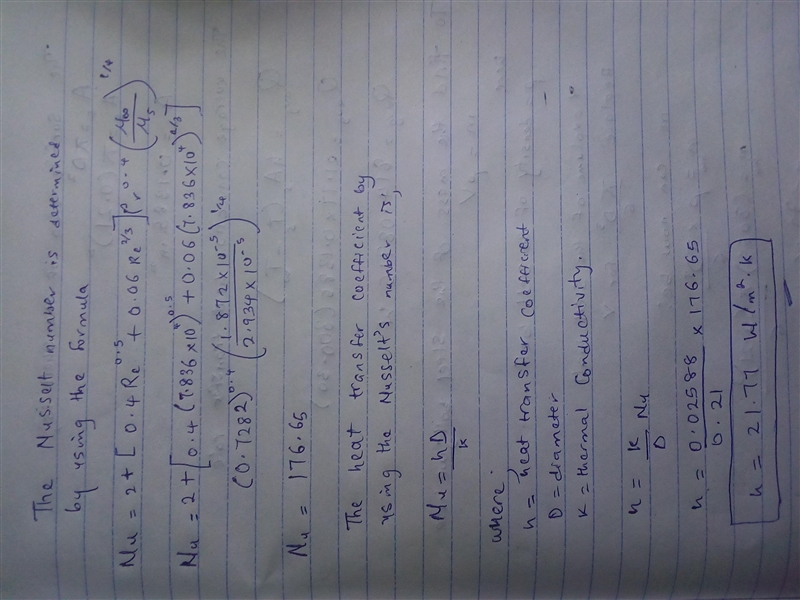 The Nusselt number is determined
by using the formula
Nu = 2 + [ 0.4 Re^0.5 + 0.06 Re^2/3 ] Pr^0.4 (μ∞/μs)^1/4
Nu = 2 + [ 0.4 (7.836×10^4)^0.5 + 0.06 (7.836×10^4)^2/3 ]
(0.7282)^0.4 (1.872×10^-5/2.934×10^-5)^1/4
Nu = 176.65
The heat transfer coefficient by
using the Nusselt's number is;
Nu = hD/k
where
h = heat transfer coefficient
D = diameter
K = thermal conductivity.
h = K/D Nu
h = 0.02588/0.21 × 176.65
h = 21.77 W/m².k